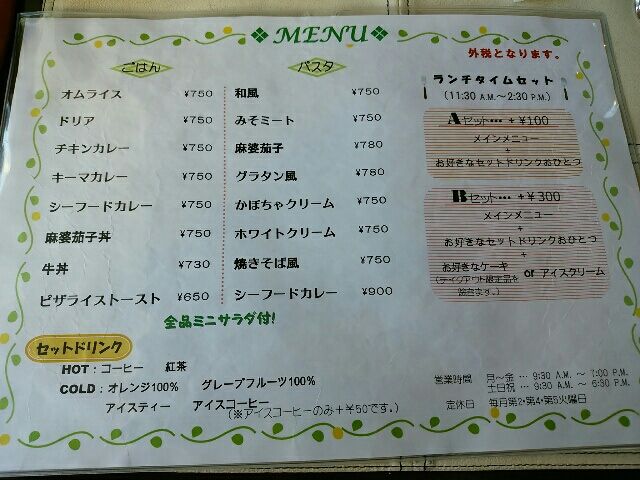 MENU
外税となります。
ごはん
オムライス ¥750
ドリア ¥750
チキンカレー ¥750
キーマカレー ¥750
シーフードカレー ¥750
麻婆茄子丼 ¥750
牛丼 ¥730
ピザライストースト ¥650
パスタ
和風 ¥750
みそミート ¥750
麻婆茄子 ¥780
グラタン風 ¥780
かぼちゃクリーム ¥750
ホワイトクリーム ¥750
焼きそば風 ¥750
シーフードカレー ¥900
全品ミニサラダ付!
ランチタイムセット
(11:30 A.M.~2:30 P.M.)
Aセット… + ¥100
メインメニュー
+
お好きなセットドリンクおひとつ
Bセット… + ¥300
メインメニュー
+
お好きなセットドリンクおひとつ
+
お好きなケーキ or アイスクリーム
(テイクアウト限定品を
除きます。)
セットドリンク
HOT：コーヒー 紅茶
COLD：オレンジ100% グレープフルーツ100%
アイスティー アイスコーヒー
(※アイスコーヒーのみ+¥50です。)
営業時間 月~金 … 9:30 A.M. ~ 7:00 P.M.
土日祝 … 9:30 A.M. ~ 6:30 P.M.
定休日 毎月第2・第4・第5火曜日